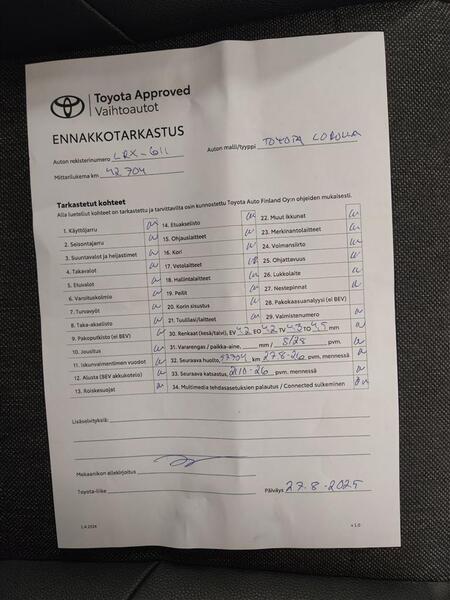 Toyota Approved
Vaihtoautot
ENNAKKOTARKASTUS
Auton rekisterinumero LRX-611
Auton malli/tyyppi TOYOTA COROLLA
Mittarilukema km 42704
Tarkastetut kohteet
Alla luetellut kohteet on tarkastettu ja tarvittavilta osin kunnostettu Toyota Auto Finland Oy:n ohjeiden mukaisesti.
1. Käyttöjarru
2. Seisontajarru
3. Suuntavalot ja heijastimet
4. Takavalot
5. Etuvalot
6. Varoituskolmio
7. Turvavyöt
8. Taka-akselisto
9. Pakoputkisto (ei BEV)
10. Jousitus
11. Iskunvaimentimen vuodot
12. Alusta (BEV akkukotelo)
13. Roiskesuojat
14. Etuakselisto
15. Ohjauslaitteet
16. Kori
17. Vetolaitteet
18. Hallintalaitteet
19. Peilit
20. Korin sisustus
21. Tuulilasi/laitteet
22. Muut ikkunat
23. Merkinantolaitteet
24. Voimansiirto
25. Ohjattavuus
26. Lukkolaite
27. Nestepinnat
28. Pakokaasuanalyysi (ei BEV)
29. Valmistenumero
30. Renkaat (kesä/talvi), EV 4,2 EO 4,2 TV 4,3 TO 4,5 mm
31. Vararengas / paikka-aine, mm / 8/28 pvm.
32. Seuraava huolto, km 27.8-26 pvm. mennessä
33. Seuraava katsastus, pvm. mennessä
34. Multimedia tehdasasetuksien palautus / Connected sulkeminen
Lisäselvityksiä:
Mekaanikon allekirjoitus
Toyota-liike
Päiväys 27.8.2025
1.4.2024
v 1.0